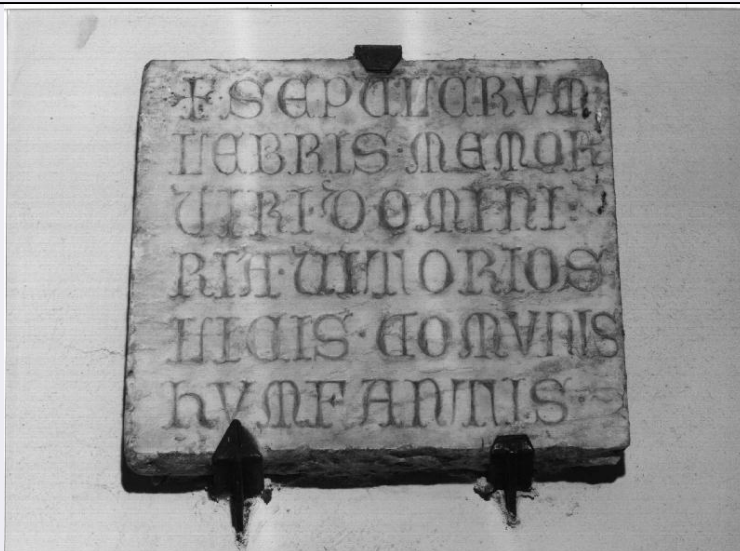 + SEPULCRVM
LEBRIS · MEMOR
UIRI · DOMINI ·
RIA · UITTORIOS
LICIS · COMVNIS
hVMFANTIS ·